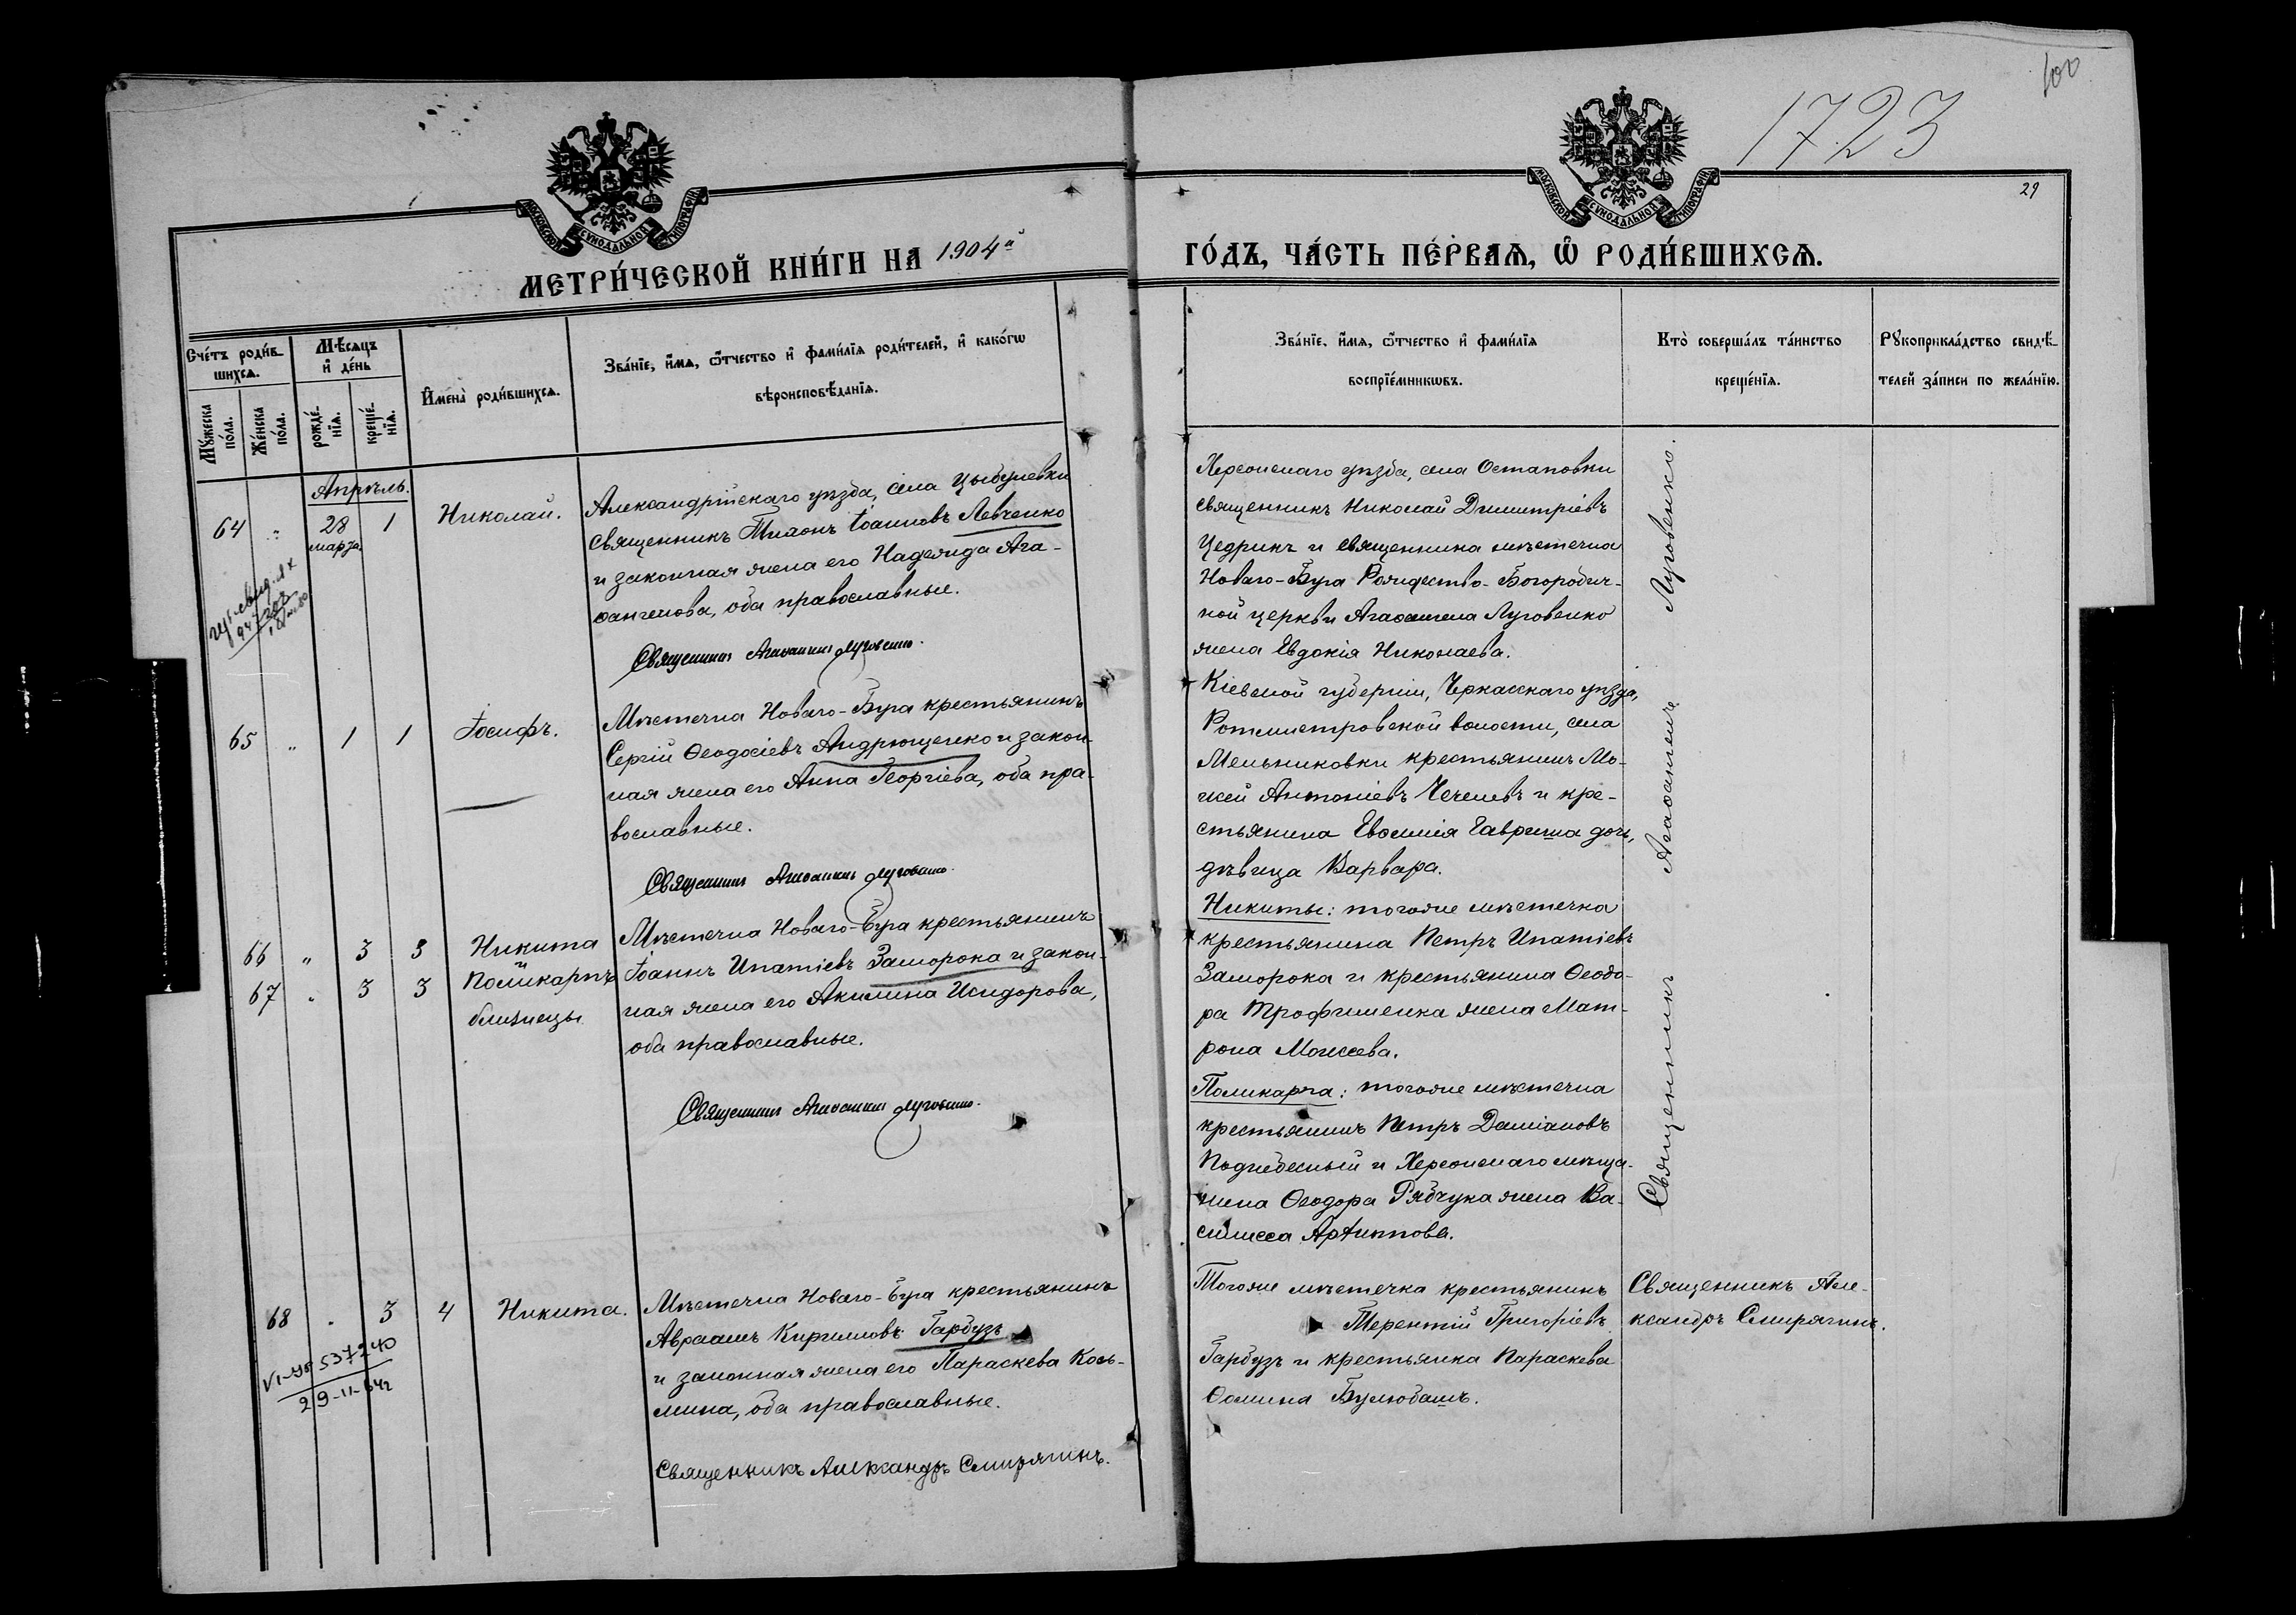 100
1723
29
МОСКОВСКОЙ СѴНОДАЛЬНОЙ ТИПОГРАФІИ
МОСКОВСКОЙ СѴНОДАЛЬНОЙ ТИПОГРАФІИ
МЕТРИ́ЧЕСКОЙ КНИ́ГИ НА 1904й
ГО́ДЪ, ЧА́СТЬ ПЕ́РВАѦ, Ѽ РОДИ́ВШИХСѦ.
Сче́тъ роди́в-
шихсѧ.
Мѣ́сѧцъ
и҆ де́нь
Му́жеска
по́ла.
Же́нска
по́ла.
рожде́-
нїѧ.
креще́-
нїѧ.
И҆мена̀ роди́вшихсѧ.
Зва́нїе, и҆́мѧ, ѻ҆́тчество и҆ фами́лїѧ роди́телей, и҆ како́гѡ
вѣроисповѣ́данїѧ.
Зва́нїе, и҆́мѧ, ѻ҆́тчество и҆ фами́лїѧ
воспрїе́мникѡвъ.
Кто̀ соверша́лъ та́инство
креще́нїѧ.
Рꙋкоприкла́дство свидѣ́-
телей за́писи по жела́нїю.
Апрѣль.
64 „ 28 1 Николай.
марта.
Александрійскаго уѣзда, села Цыбулевки
священникъ Тихонъ Іоанновъ Левченко
и законная жена его Надежда Ага-
ѳангелова, оба православные.
Священникъ Агаѳангелъ Луговенко.
Херсонскаго уѣзда, села Остаповки
священникъ Николай Димитріевъ
Цедрикъ и священника мѣстечка
Новаго-Буга Рождество-Богородич-
ной церкви Агаѳангела Луговенко
жена Евдокія Николаева.
65 „ 1 1 Іосифъ.
Мѣстечка Новаго-Буга крестьянинъ
Сергій Ѳеодосіевъ Андрющенко и закон-
ная жена его Анна Георгіева, оба пра-
вославные.
Священникъ Агаѳангелъ Луговенко.
Кіевской губерніи, Черкасскаго уѣзда,
Ротмистровской волости, села
Мельниковки крестьянинъ Мо-
исей Антоніевъ Чечель и кре-
стьянина Евѳимія Гавриша дочь,
дѣвица Варвара.
66 „ 3 3 Никита
и
67 „ 3 3 Поликарпъ
близнецы
Мѣстечка Новаго-Буга крестьянинъ
Іоаннъ Ипатіевъ Заморока и закон-
ная жена его Акилина Исидорова,
оба православные.
Священникъ Агаѳангелъ Луговенко.
Никиты: тогоже мѣстечка
крестьянина Петръ Ипатіевъ
Заморока и крестьянина Ѳеодо-
ра Трофименка жена Мат-
рона Моисеева.
Поликарпа: тогоже мѣстечка
крестьянинъ Петръ Даміановъ
Поднебесный и Херсонскаго мѣща-
нина Ѳеодора Рябчука жена Ва-
силисса Архиппова.
Священникъ Агаѳангелъ Луговенко.
68 „ 3 4 Никита.
VI-УР 537240
29-11-64г
Мѣстечка Новаго-Буга крестьянинъ
Авраамъ Кирилловъ Гарбузъ
и законная жена его Параскева Кось-
мина, оба православные.
Священникъ Александръ Смирягинъ.
Тогоже мѣстечка крестьянинъ
Терентій Григоріевъ
Гарбузъ и крестьянка Параскева
Ѳомина Булюбашъ.
Священникъ Але-
ксандръ Смирягинъ.